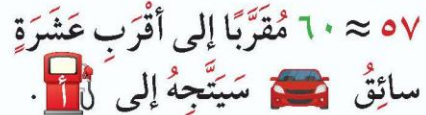 ٥٧ ≈ ٦٠ مُقَرَّبًا إلى أَقْرَبِ عَشَرَةٍ
سائِقُ سَيَتَّجِهُ إلى أ .